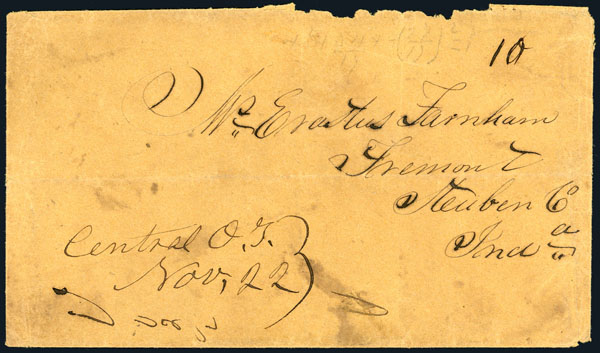 10
Mr. Erastus Farnham
Fremont
Steuben Co
Inda
Central O.T.
Nov, 22